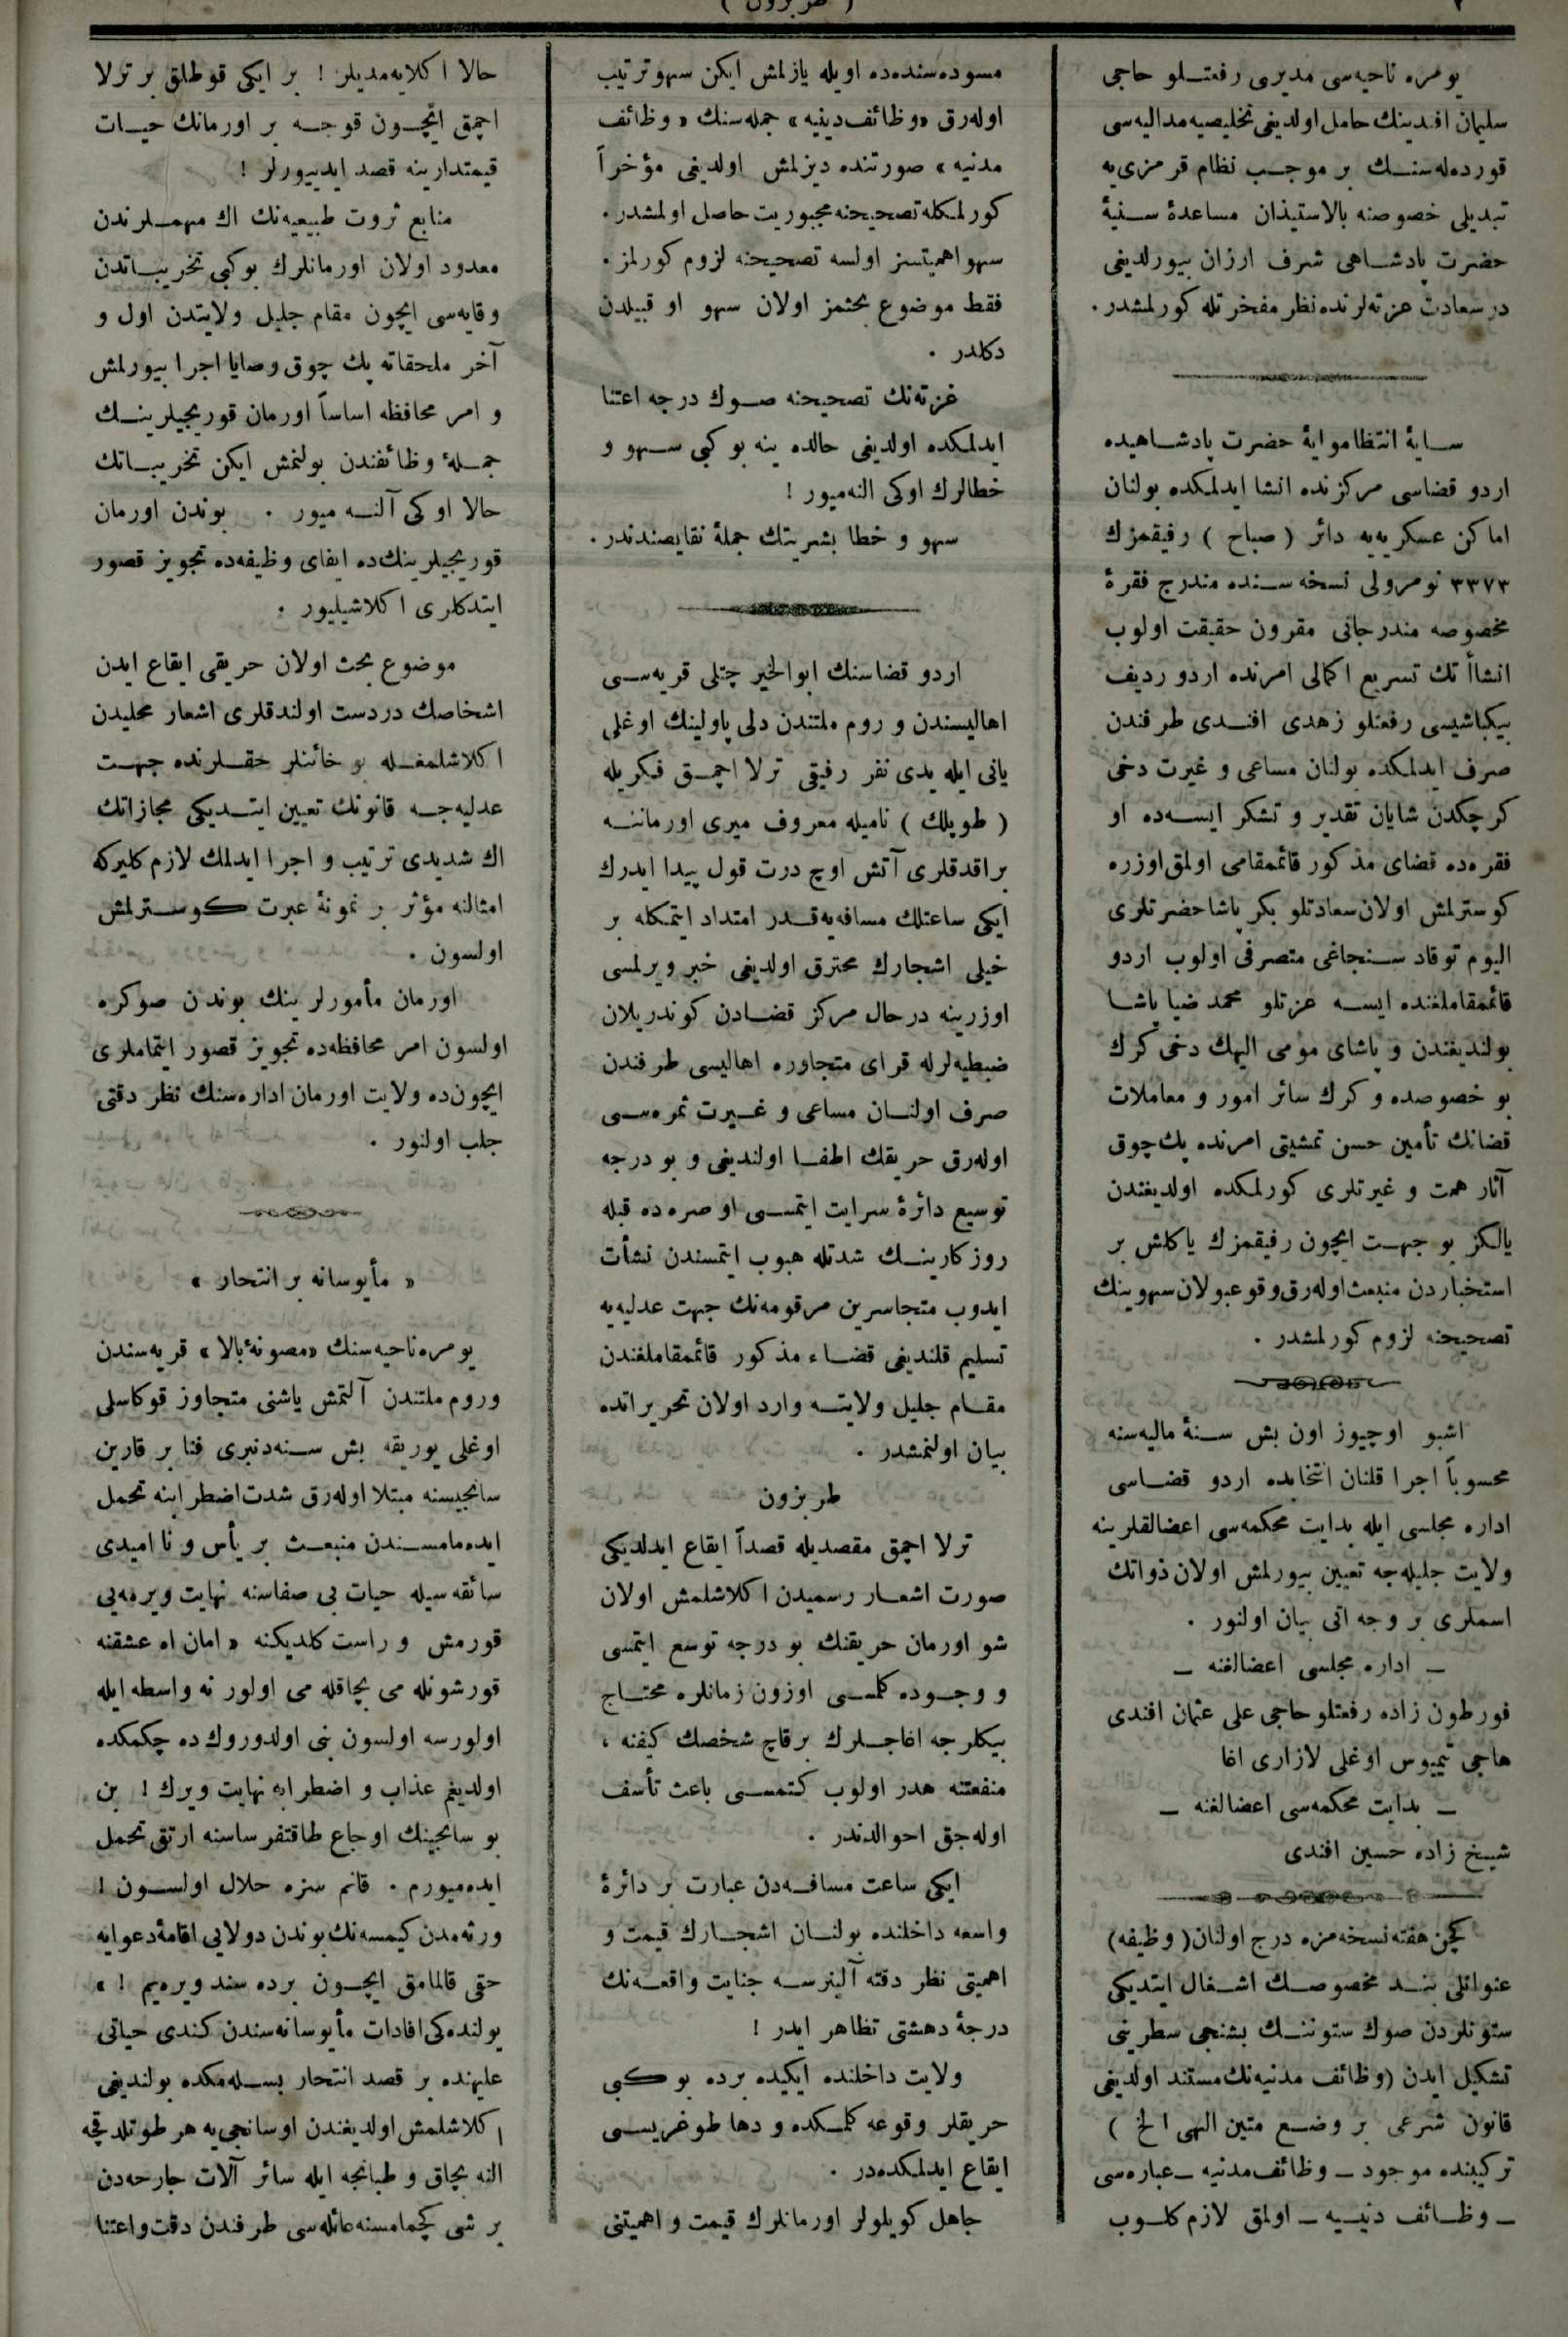 ٢
( طربزون )
يومره ناحيه‌سی مديری رفعتـلو حاجی
سليمان افدينك حامل اولديغی تخليصيه مداليه‌سی
قورده‌له‌سنـك بر موجـب نظام قرمزی‌يه
تبديلی خصوصنه بالاستيذان مساعدۀ سـنيۀ
حضرت پادشـاهی شرف ارزان بيورلديغی
درسعادت غزته‌لرنده نظر مفخرتله كورلمشدر .
سـايۀ انتظاموايۀ حضرت پادشـاهيده
اردو قضاسی مركزنده انشا ايدلمكده بولنان
اماكن عسكريه‌يه دائر ( صباح ) رفيقمزك
٣٣٧٣ نومرولی نسخه سـنده مندرج فقرۀ
مخصوصه مندرجاتی مقرون حقيقت اولوب
انشاأتك تسريع اكمالی امرنده اردو رديف
بيكباشيسی رفعتلو زهدی افنـدی طرفندن
صرف ايدلمكده بولنان مساعی و غيرت دخی
كرچكدن شايان تقدير و تشكر ايسـه‌ده او
فقره‌ده قضای مذكور قائممقامی اولمق اوزره
كوسترلمش اولان سعادتلو بكر پاشا حضرتلری
اليوم توقاد سـنجاغی متصرفی اولوب اردو
قائممقاملغنده ايسـه عزتلو محمد ضيا پاشـا
بولنديغندن و پاشای مومی اليهك دخی كرك
بو خصوصده و كرك سائر امور و معاملات
قضانك تأمين حسن تمشيتی امرنده پك چوق
آثار همت و غيرتلری كورلمكده اولديغندن
يالكز بو جهـت ايچون رفيقمزك ياكلش بر
استخباردن منبعث اوله‌رق وقوعبولان سهوينك
تصحيحنه لزوم كورلمشدر .
اشبو اوچيوز اون بش سـنۀ ماليه‌سنه
محسوباً اجرا قلنان انتخابده اردو قضـاسی
اداره مجلسی ايله بدايت محكمه‌سی اعضالقلرينه
ولايت جليله‌جه تعيين بيورلمش اولان ذواتك
اسملری بر وجه اتی بيان اولنور .
ــ اداره مجلسی اعضالغنه ــ
فورطون زاده رفعتلو حاجی علی عثمان افندی
هاجی تيميوس اوغلی لازاری اغا
ــ بدايت محكمه‌سی اعضالغنه ــ
شيـخ زاده حسين افندی
كچن هفته نسخه‌مزه درج اولنان ( وظيفه)
عنوانلی بنـد مخصوصـك اشـغال ايتديكی
ستونلردن صوك ستوننـك بشنجی سطرينی
تشكيل ايدن (وظائف مدنيه‌نك مستند اولديغی
قانون شرعی بر وضـع متين الهی الخ )
تركيبنده موجود ــ وظائف مدنيه ــ عباره‌سی
ــ وظـائف دينيـه ــ اولمق لازم كلـوب
مسوده‌سنده‌ده اويله يازلمش ايكن سهو ترتيب
اوله‌رق «وظائف دينيه» جمله‌سنك « وظائف
مدنيه » صورتنده ديزلمش اولديغی مؤخراً
كورلمكله تصحيحنه مجبوريت حاصل اولمشدر .
سهو اهميتسز اولسه تصحيحنه لزوم كورلمز .
فقط موضوع بحثمز اولان سهو او قبيلدن
دكلدر .
غزته‌نك تصحيحنه صـوك درجه اعتنا
ايدلمكده اولديغی حالده ينه بو كبی سـهو و
خطالرك اوكی النه‌ميور !
سهو و خطا بشريتك جملۀ نقايصندندر .
اردو قضاسنك ابوالخير چتلی قريه‌سـی
اهاليسندن و روم ملتندن دلی پاولينك اوغلی
يانی ايله يدی نفر رفيقی ترلا اچمـق فكريله
( طويلك ) ناميله معروف ميری اورماننـه
براقدقلری آتش اوچ درت قول پيدا ايدرك
ايكی ساعتلك مسافه‌يه‌قـدر امتداد ايتمكله بر
خيلی اشجارك محترق اولديغی خبر ويرلمسی
اوزرينه درحال مركز قضـادن كوندريلان
ضبطيه‌لرله قرای متجاوره اهاليسی طرفندن
صرف اولنـان مساعی و غـيرت ثمره‌سـی
اوله‌رق حريقك اطفـا اولنديغی و بو درجه
توسيع دائرۀ سرايت ايتمسـی او صره‌ده قبله
روزكارينـك شدتله هبوب ايتمسندن نشأت
ايدوب متجاسرين مرقومه‌نك جهت عدليه‌يه
تسليم قلنديغی قضـاء مذكور قائممقاملغندن
مقـام جليل ولايتـه وارد اولان تحريراتده
بيان اولنمشدر .
طربزون
ترلا اچمق مقصديله قصداً ايقاع ايدلديكی
صورت اشعـار رسميدن اكلاشلمش اولان
شو اورمان حريقنك بو درجه توسع ايتمسی
و وجـوده كلمسـی اوزون زمانلره محتـاج
بيكلرجه اغاجـلرك برقاچ شخصك كيفنه ،
منفعتنه هدر اولوب كتمسـی باعث تأسف
اوله‌جق احوالدندر .
ايكی ساعت مسافـه‌دن عبارت بر دائرۀ
واسعه داخلنده بولنـان اشجـارك قيمت و
اهميتی نظر دقته آلينرسـه جنايت واقعـه‌نك
درجۀ دهشتی تظاهر ايدر !
ولايت داخلنده ايكيده برده بو كبی
حريقلر وقوعه كلمكده و دها طوغريسـی
ايقاع ايدلمكده‌در .
جاهل كويلولر اورمانلرك قيمت و اهميتنی
حالا اكلايه‌مديلر ! بر ايكی قوطلق بر ترلا
اچمق ايچـون قوجـه بر اورمانك حيـات
قيمتدارينه قصد ايدييورلر !
منابع ثروت طبيعيه‌نك اك مهمـلرندن
معدود اولان اورمانلرك بوكبی تخريبـاتدن
وقايه‌سی ايچون مقام جليل ولايتدن اول و
آخر ملحقاته پك چوق وصايا اجرا بيورلمش
و امر محافظه اساساً اورمان قوريجيلرينـك
جمـلۀ وظائفندن بولنمش ايكن تخريبـاتك
حالا اوكی آلنـه‌ميور . بوندن اورمان
قوريجيلرينك‌ده ايفای وظيفه‌ده تجويز قصور
ايتدكلری اكلاشيليور .
موضوع بحث اولان حريقی ايقاع ايدن
اشخاصك دردست اولندقلری اشعار محليدن
اكلاشلمغـله بو خائنلر حقـلرنده جهـت
عدليه‌جـه قانونك تعيين ايتـديكی مجازاتك
اك شديدی ترتيب و اجرا ايدلمك لازم كليركه
امثالنه مؤثر بر نمونۀ عبرت كوسـترلمش
اولسون .
اورمان مأمورلرينك بوندن صوكره
اولسون امر محافظه‌ده تجويز قصور ايتماملری
ايچون‌ده ولايت اورمان اداره‌سنك نظر دقتی
جلب اولنور .
« مأيوسانه بر انتحار »
يومره ناحيه‌سنك «مصونۀ بالا» قريه‌سندن
وروم ملتندن آلتمش ياشنی متجاوز قوكاسلی
اوغلی يوريقه بش سـنه‌دنبری فنا بر قارين
سانجيسنه مبتلا اوله‌رق شدت اضطرابنه تحمل
ايده‌مامسـندن منبعـث بر يأس و نا اميدی
سائقه سيله حيات بی صفاسنه نهايت ويرمه‌يی
قورمش و راست كلديكنه « امان اه عشقنه
قورشونله می بچاقله می اولور نه واسطه ايله
اولورسه اولسون بنی اولدوروك ده چكمكده
اولديغم عذاب و اضطرابه نهايت ويرك ! بن
بو سانجينك اوجاع طاقتفرساسنه ارتق تحمل
ايده‌ميورم . قانم سزه حلال اولسـون !
ورثه‌مدن كيمسه‌نك بوندن دولايی اقامۀ دعوايه
حقی قالمامق ايچـون برده سند ويره‌يم ! »
يولنده‌كی افادات مأيوسانه‌سندن كندی حياتی
عليهنده بر قصد انتحار بسـله‌مكده بولنديغی
اكلاشلمش اولديغندن او سانجی‌يه هر طوتلدقجه
النه بچاق و طبانجه ايله سائر آلات جارحه‌دن
بر شی كچمامسنه عائله‌سی طرفندن دقت و اعتنا